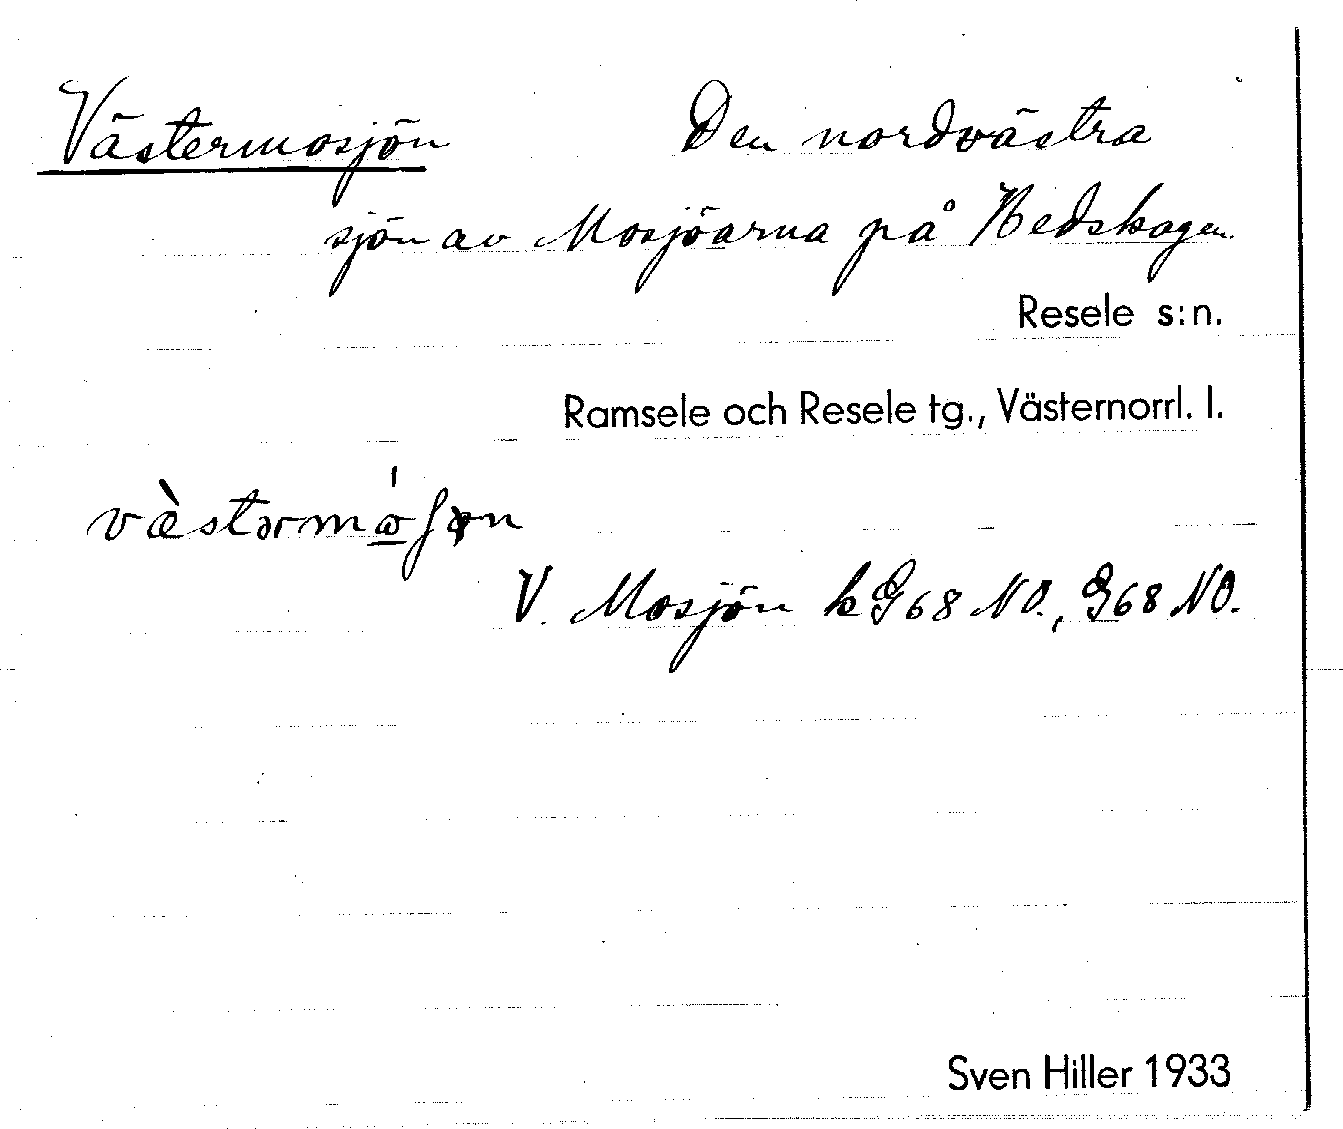 Västermosjön Den nordvästra
sjön av Mosjöarna på Hedskogen.
Resele s:n.
Ramsele och Resele tg., Västernorrl. l.
V. Mosjön k G68 NO., G68 NO.
Sven Hiller 1933